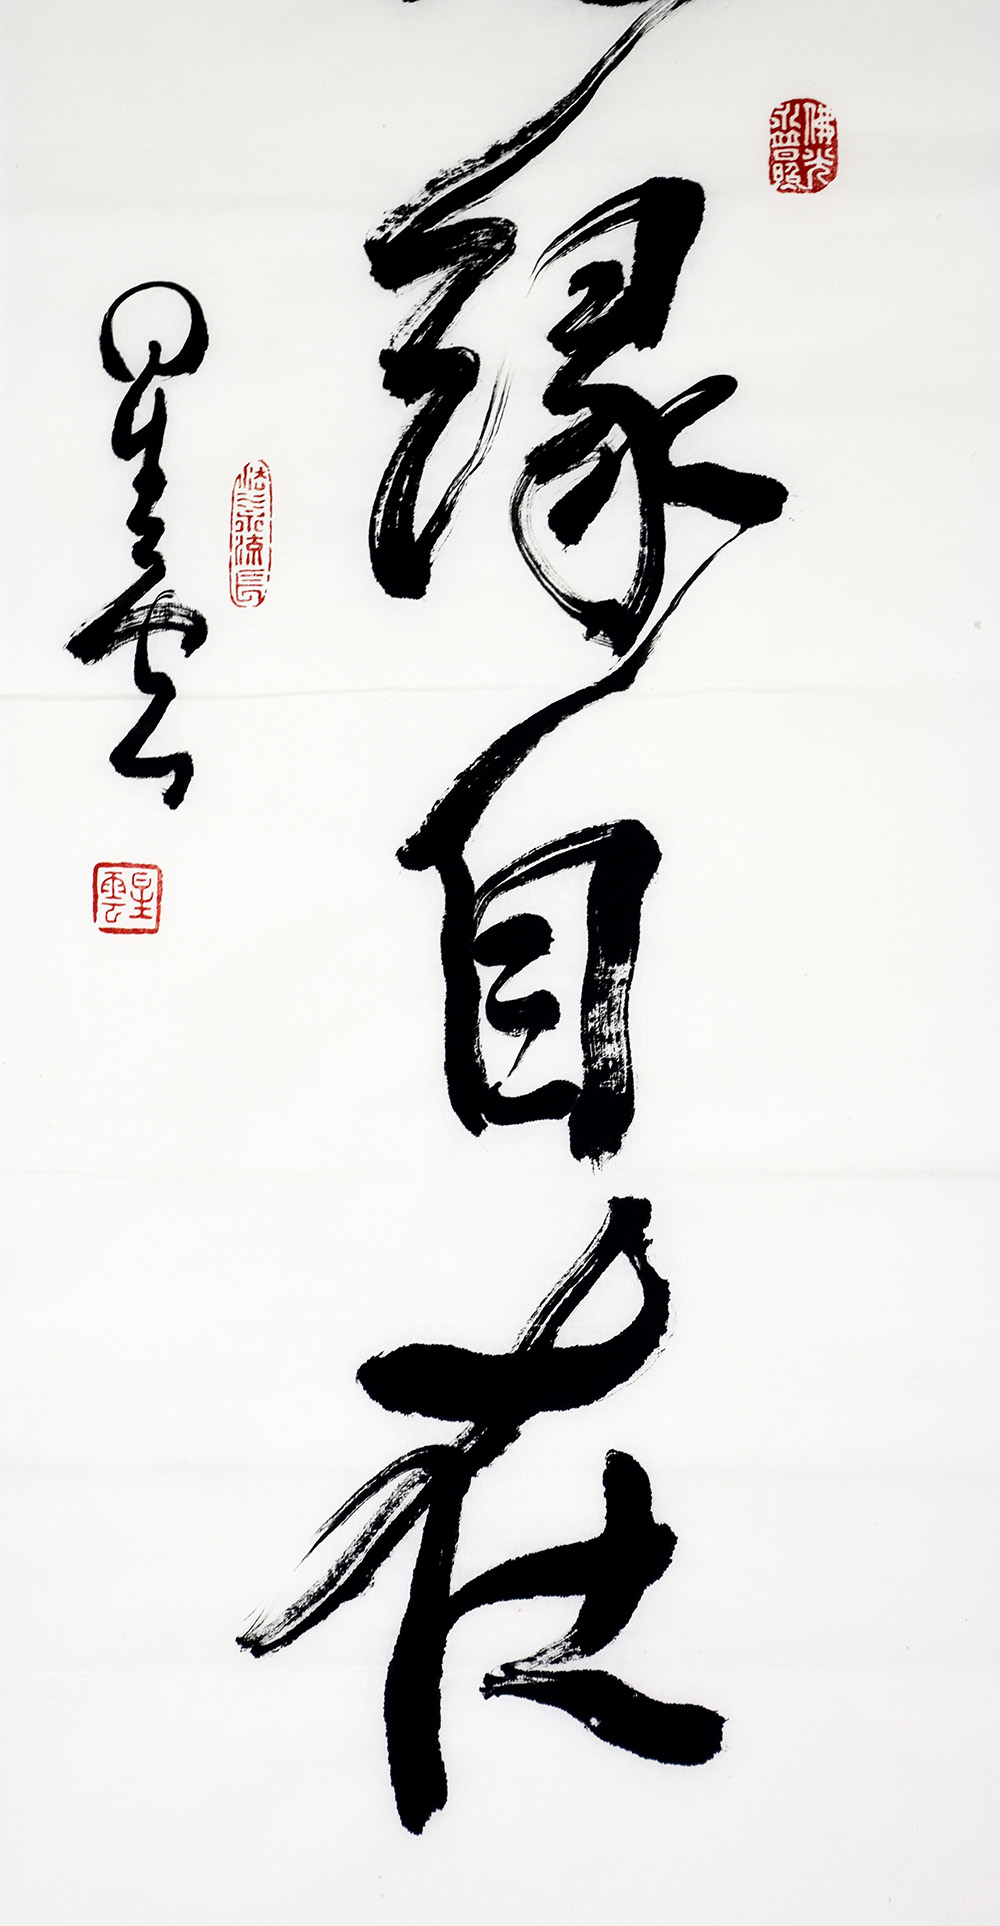 緣自在
佛光
永普照
星雲
法水流長
星雲